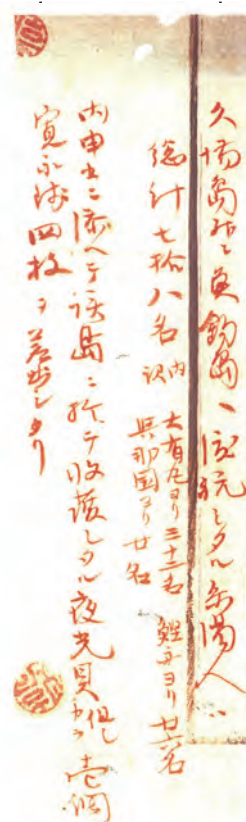 久場島并ニ魚釣島ヘ渡航シタル糸満人ハ
総計七拾八名
内訳
大有丸ヨリ三十二名 鰹舟ヨリ廿六名
與那国ヨリ廿名
両申書ニ添ヘテ該島ニ於テ収獲シタル夜光貝 壱個
寛永銭四枚ヲ差出シタリ